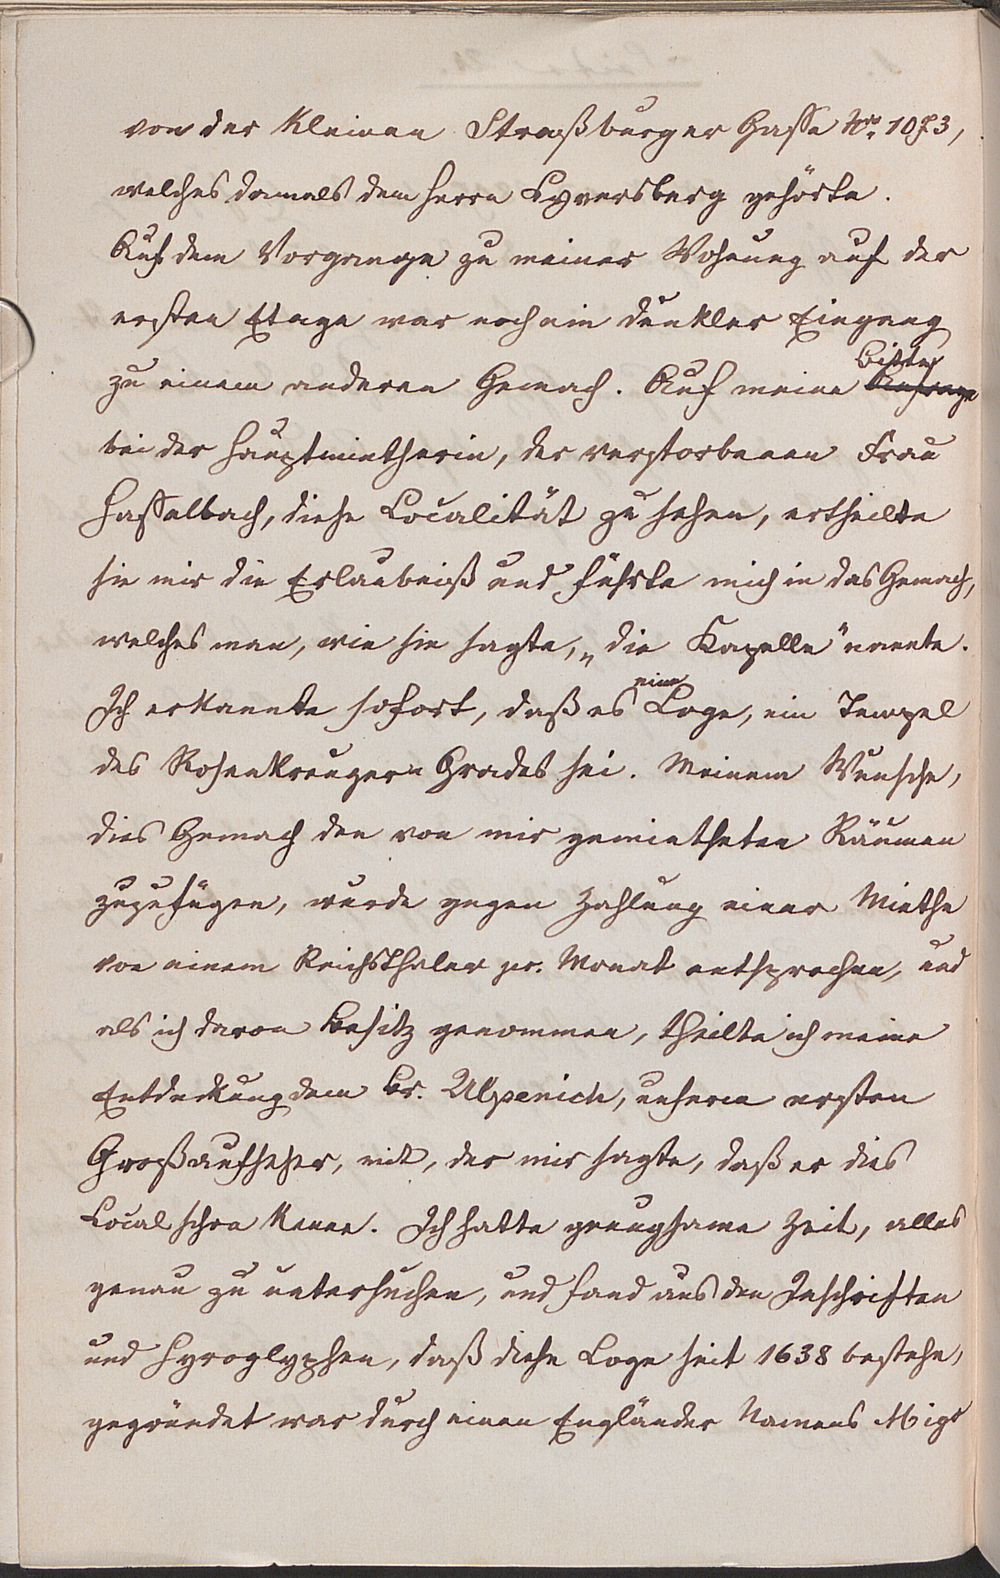 von der kleinen Straßburger Gasse Nro. 1073,
welches damals dem Herrn Lyversberg gehörte.
Auf dem Vorgange zu meiner Wohnung auf der
ersten Etage war noch ein dunkler Eingang
zu einem anderen Gemach. Auf meine Anfrage Bitte
bei der Hauptmietherin, der verstorbenen Frau
Hasselbach, diese Localität zu sehen, ertheilte
sie mir die Erlaubniß und führte mich in das Gemach,
welches man, wie sie sagte, „die Kapelle" nannte.
Ich erkannte sofort, daß es eine Loge, ein Tempel
des Rosenkreuzer-Grades sei. Meinem Wunsche,
dies Gemach den von mir gemietheten Räumen
zuzufügen, wurde gegen Zahlung einer Miethe
von einem Reichsthaler pr. Monat entsprochen, und
als ich davon Besitz genommen, theilte ich meine
Entdeckung dem Br. Ulpenich, unserm ersten
Großaufseher, mit, der mir sagte, daß er dies
Local schon kenne. Ich hatte genugsame Zeit, alles
genau zu untersuchen, und fand aus den Inschriften
und Hyroglyphen, daß diese Loge seit 1638 bestehe,
gegründet war durch einen Engländer Namens